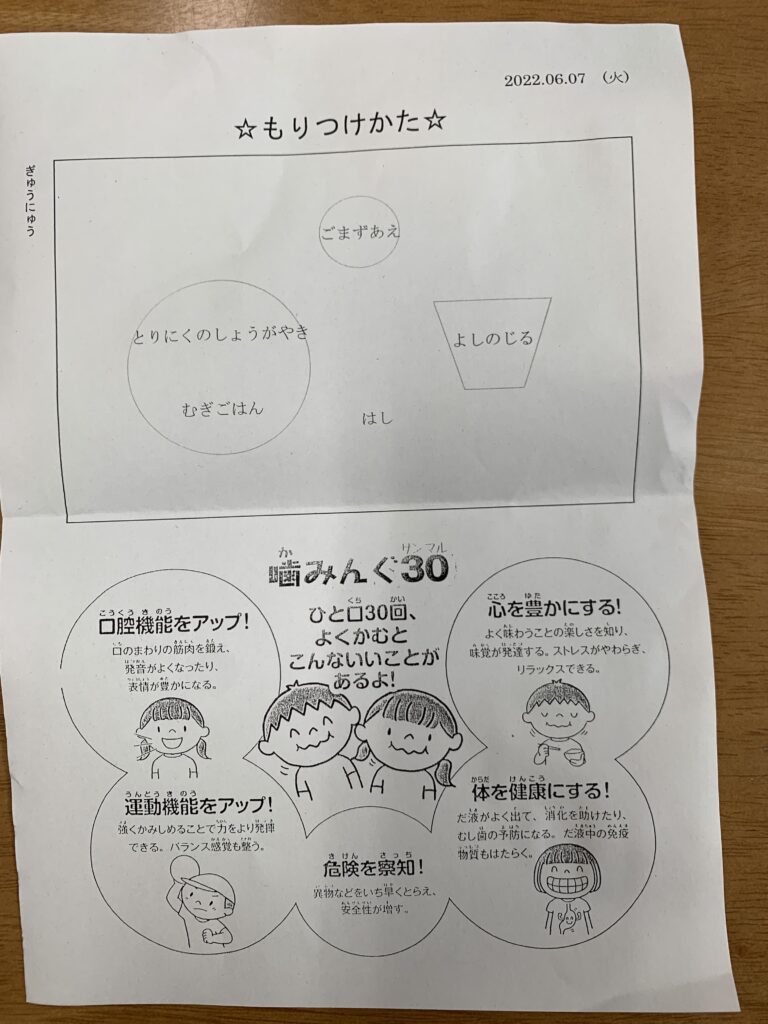 2022.06.07 （火）
☆もりつけかた☆
ぎゅうにゅう
ごまずあえ
とりにくのしょうがやき
よしのじる
むぎごはん
はし
噛みんぐ30
か
サンマル
ひと口30回、
よくかむと
こんないいことが
あるよ！
くち かい
こうくう き のう
口腔機能をアップ！
口のまわりの筋肉を鍛え、
発音がよくなったり、
表情が豊かになる。
こころ ゆた
心を豊かにする！
よく味わうことの楽しさを知り、
味覚が発達する。ストレスがやわらぎ、
リラックスできる。
うんどう き のう
運動機能をアップ！
強くかみしめることで力をより発揮
できる。バランス感覚も整う。
き けん さっ ち
危険を察知！
異物などをいち早くとらえ、
安全性が増す。
からだ けんこう
体を健康にする！
だ液がよく出て、消化を助けたり、
むし歯の予防になる。だ液中の免疫
物質もはたらく。